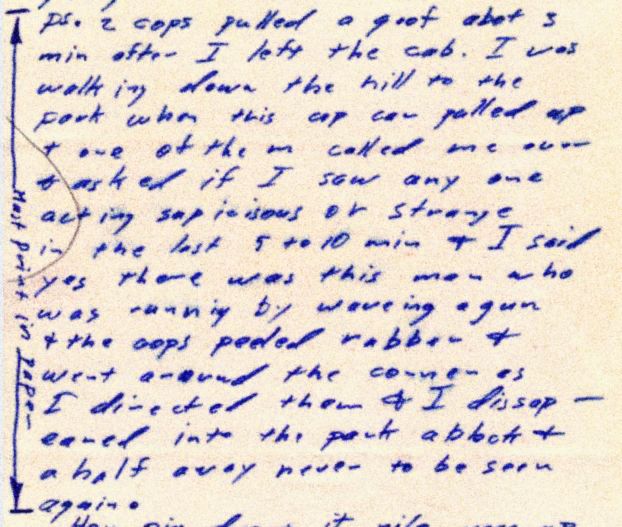 ps. 2 cops pulled a goof abot 3
min after I left the cab. I was
walking down the hill to the
park when this cop car pulled up
+ one of them called me over
+ asked if I saw any one
acting supicisous or strange
in the last 5 to 10 min + I said
yes there was this man who
was runnig by waveing a gun
+ the cops peeled rubber +
went around the corner as
I directed them + I dissap —
eared into the park a block +
a half away never to be seen
again.
Must print in paper
Hey pig